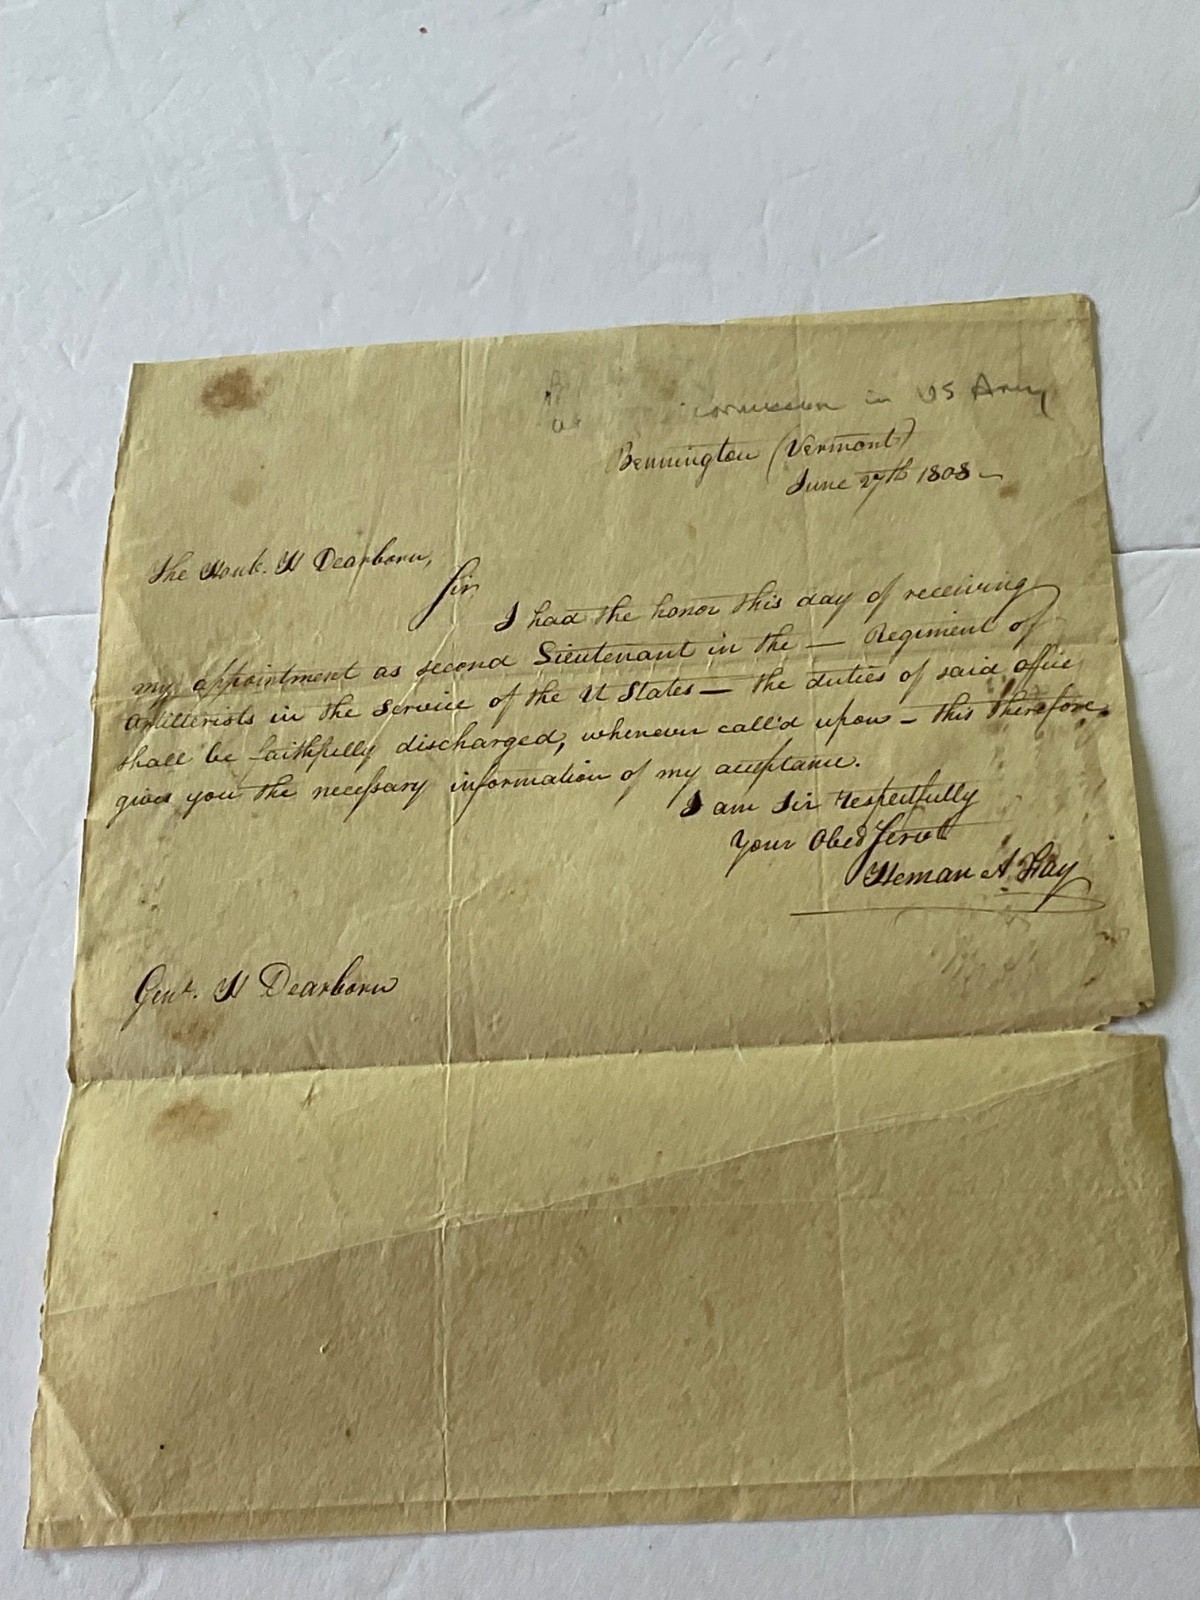 commission in US Army
Bennington (Vermont)
June 27th 1808 —
The Honb. H Dearborn,
Sir
I had the honor this day of receiving
my appointment as second Lieutenant in the — Regiment of
Artillerists in the Service of the U States — the duties of said office
shall be faithfully discharged, whenever call'd upon — this therefore
gives you the necessary information of my acceptance.
I am Sir respectfully
Your Obed Servt
Heman A Fay
Genl. H Dearborn